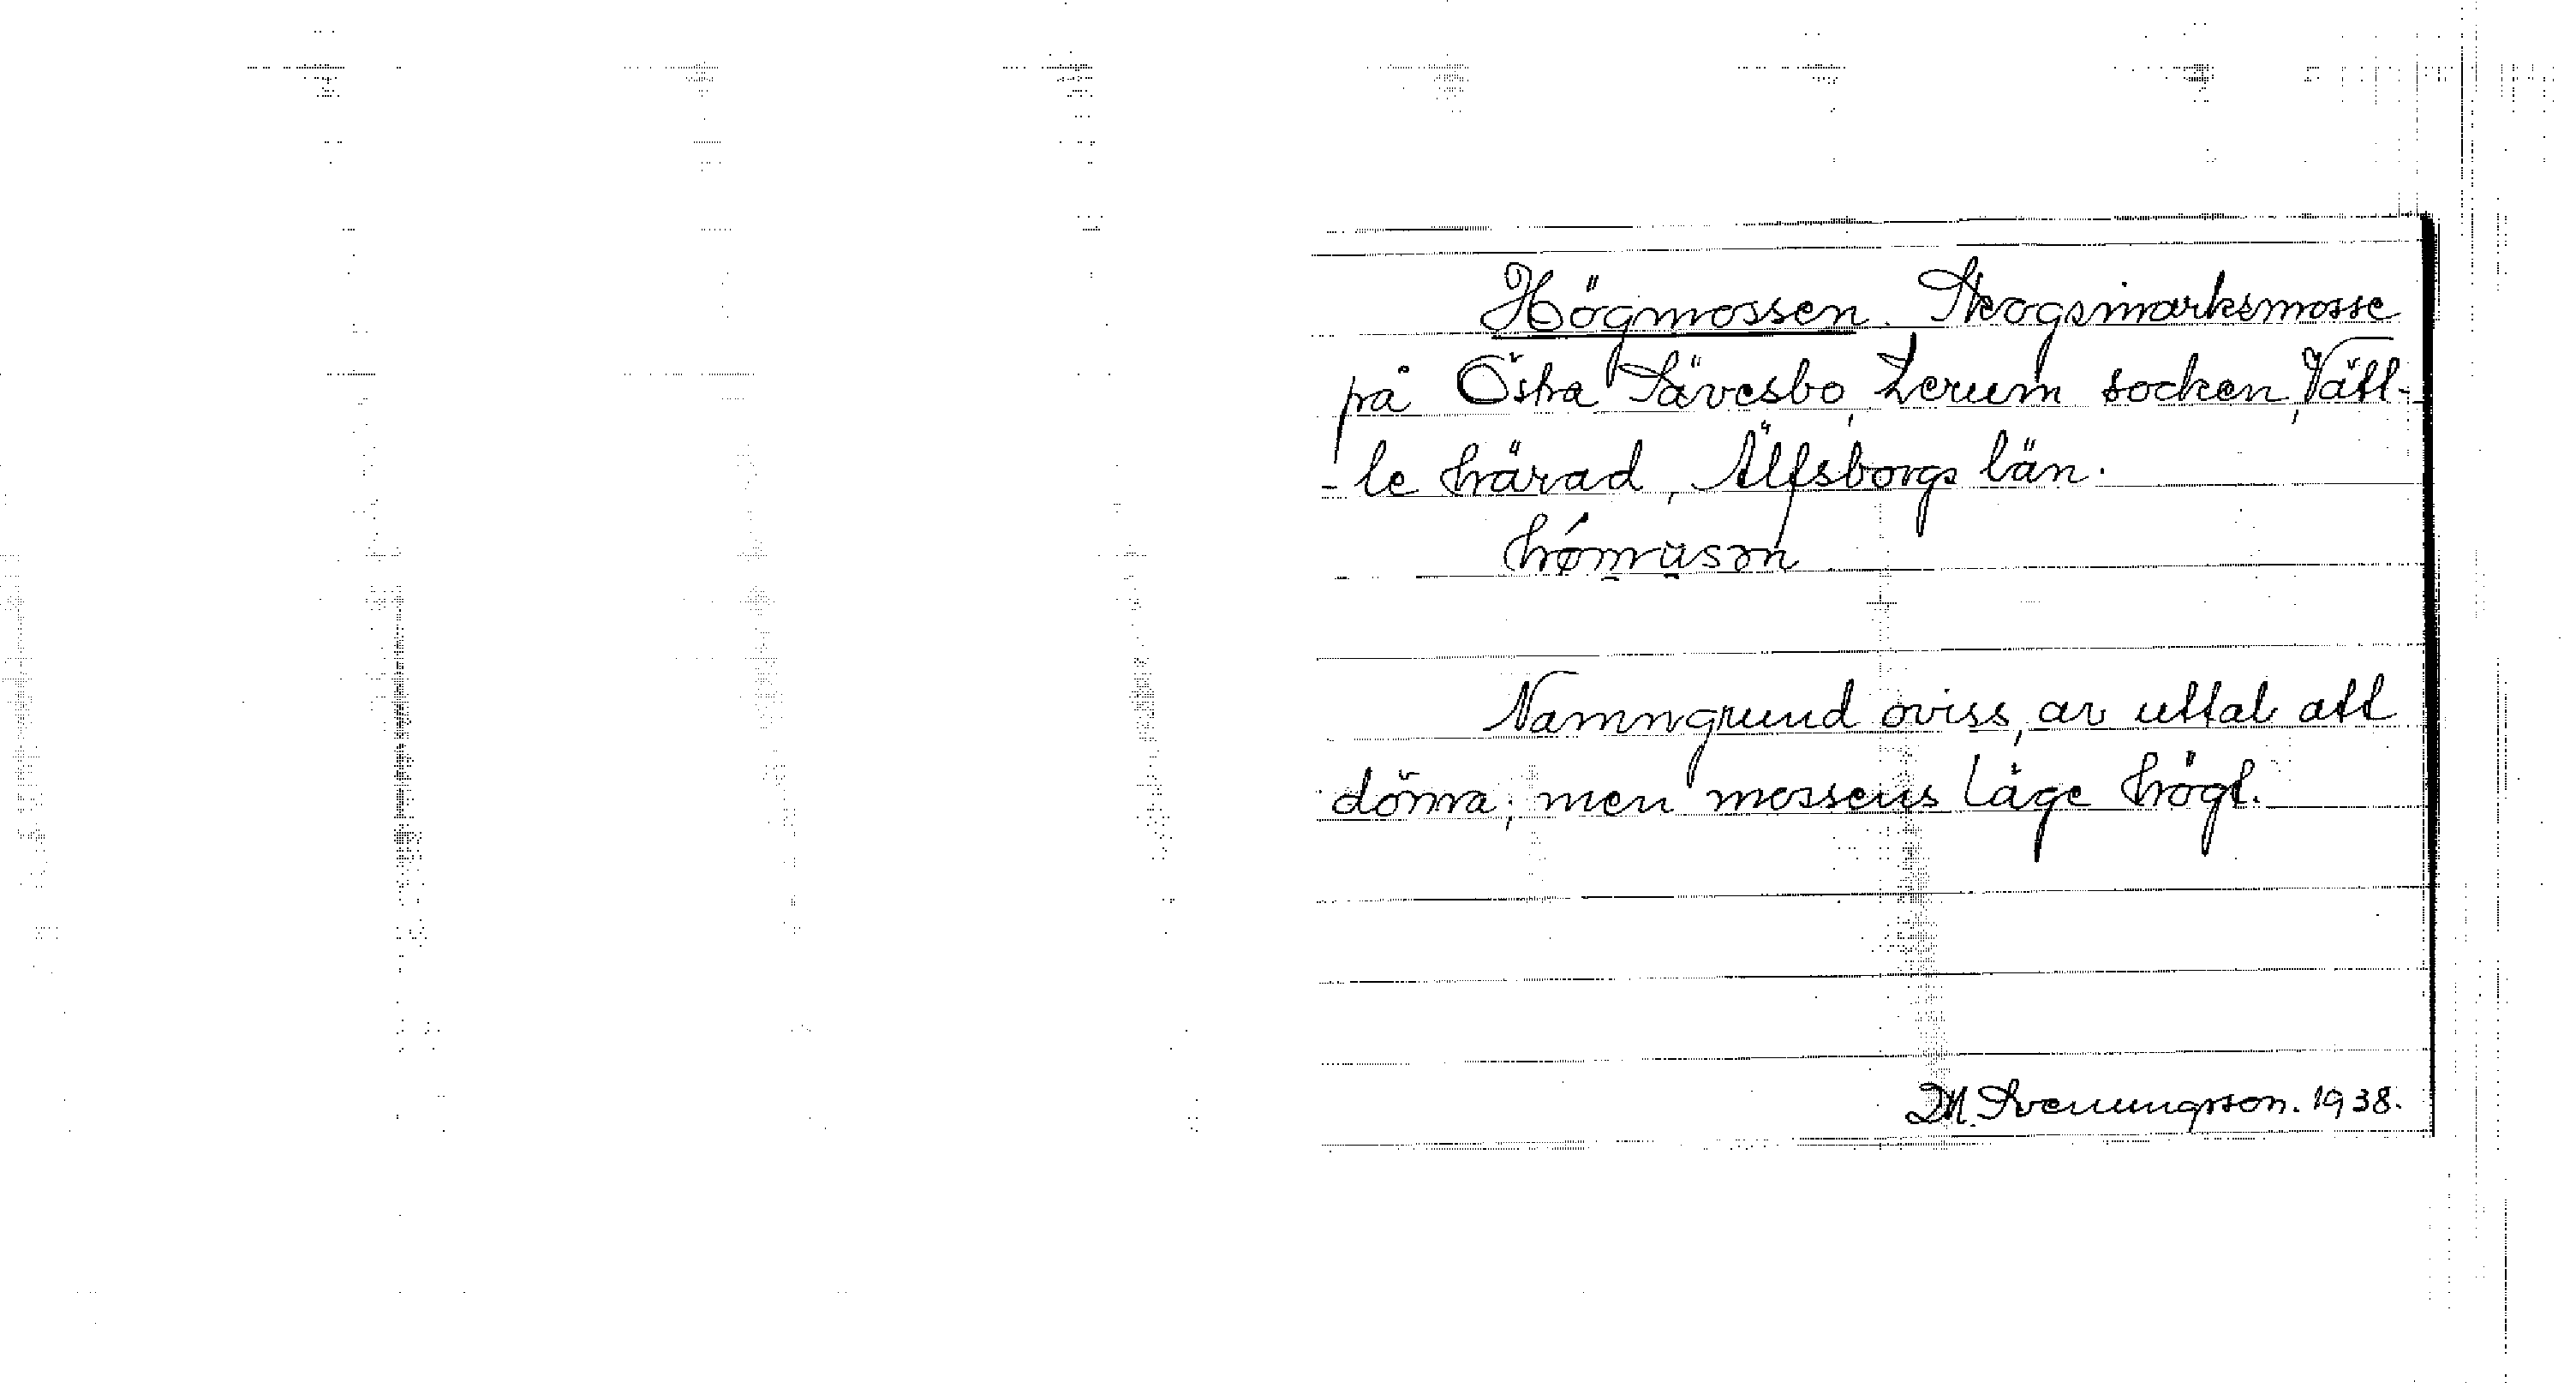 Högmossen. Skogsmarksmosse
på Östra Sävesbo, Lerum socken, Vätt-
-le härad, Älfsborgs län.
Namngrund oviss, av uttal att
döma; men mossens läge högt.
M. Svenungsson. 1938.